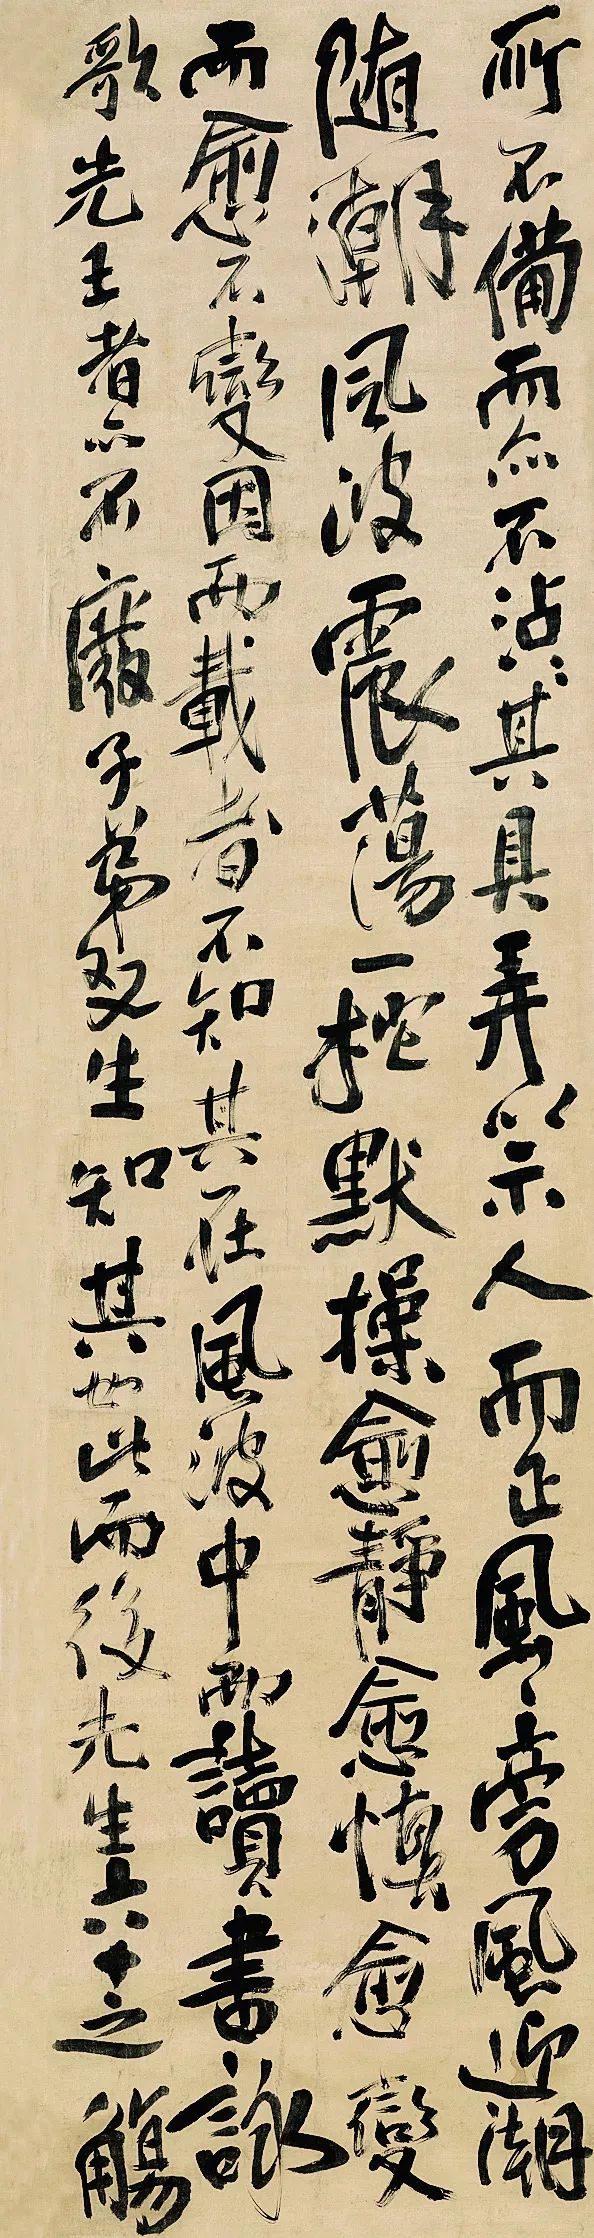 所不備而亦不沾〻其具弄以示人而正風旁風迎潮
隨潮風波震蕩一柁默操愈靜愈慎愈變
而愈不變因而載者不知其在風波中而讀書詠
歌先王者亦不廢子弟友生知其如此而後先生六十之觴